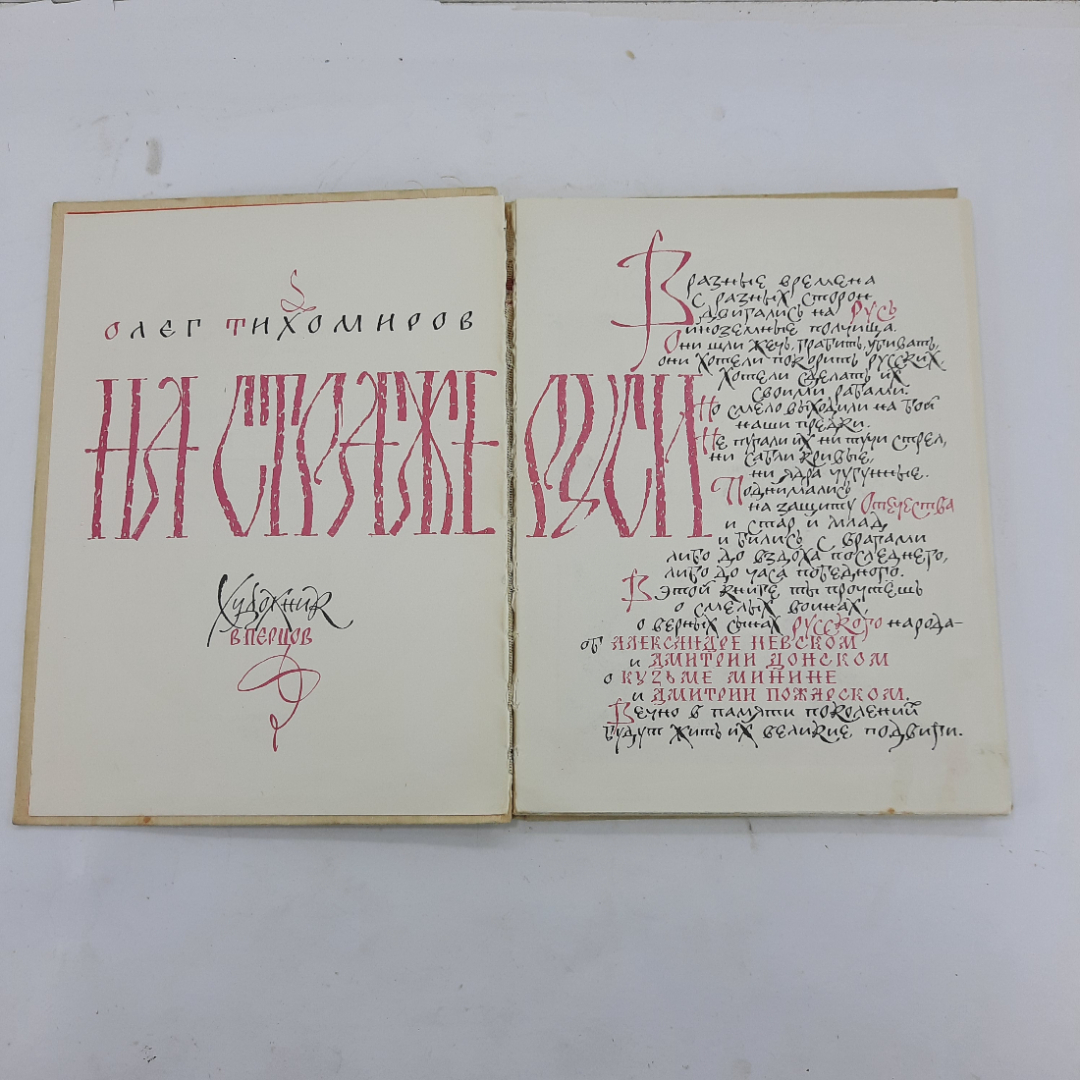 Олег Тихомиров
НА СТРАЖЕ РУСИ
Художник
В. ПЕРЦОВ
В разные времена
с разных сторон
двигались на Русь
иноземные полчища.
Они шли жечь, грабить, убивать,
они хотели покорить русских.
Хотели сделать их
своими рабами.
Но смело выходили на бой
наши предки.
Не пугали их ни тучи стрел,
ни сабли кривые,
ни ядра чугунные.
Поднимались
на защиту Отечества
и стар и млад,
и бились с врагами
либо до вздоха последнего,
либо до часа победного.
В этой книге ты прочтешь
о смелых воинах,
о верных сынах русского народа-
об АЛЕКСАНДРЕ НЕВСКОМ
и ДМИТРИИ ДОНСКОМ
о КУЗЬМЕ МИНИНЕ
и ДМИТРИИ ПОЖАРСКОМ.
Вечно в памяти поколений
будут жить их великие подвиги.